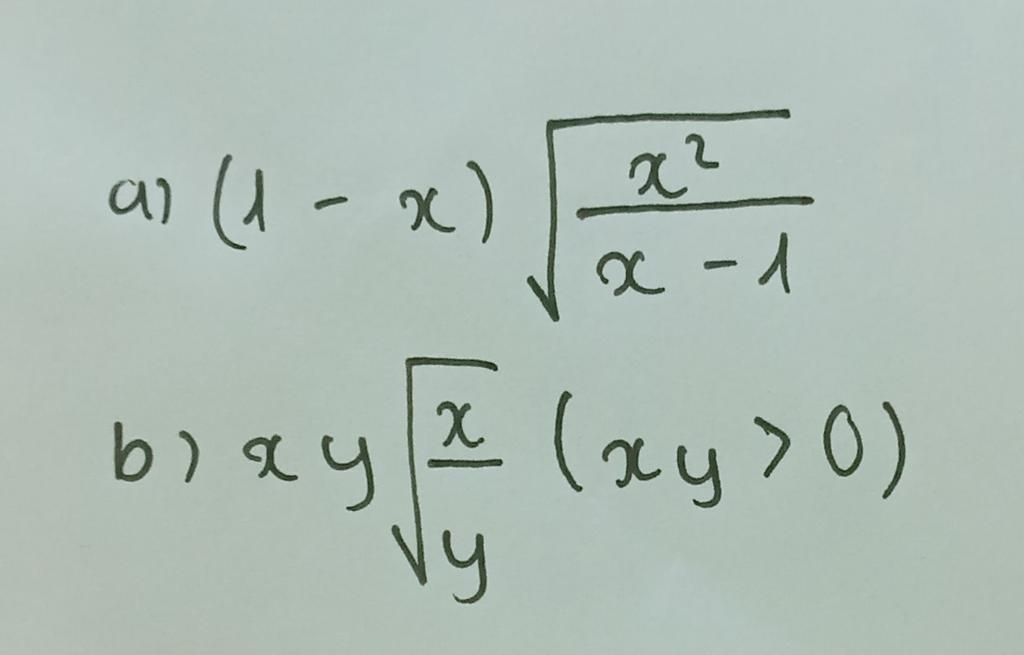 a) (1 - x) √(x²/(x - 1))
b) xy √(x/y) (xy > 0)